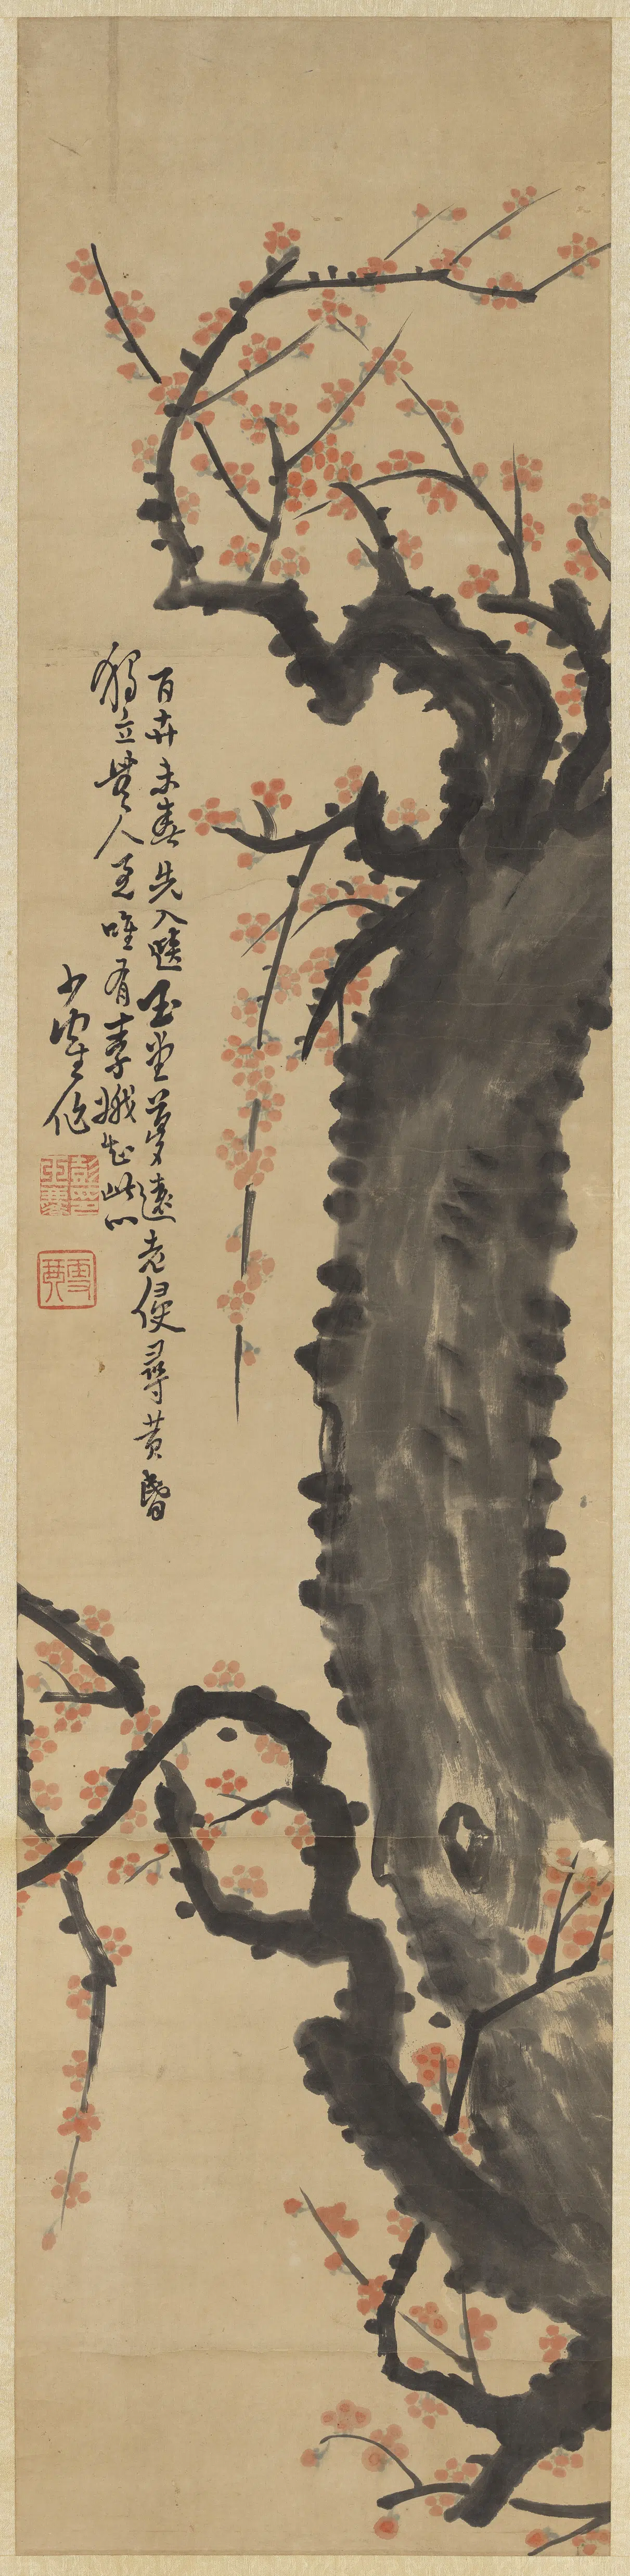 百卉未春先入玉堂夢遠老侵尋黃昏
獨立無人至唯有素娥知此心
少作